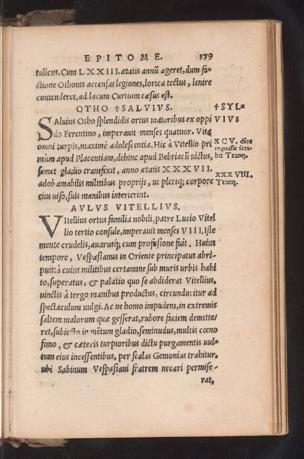 EPITOME. 379
tulicus. Cum LXXIII. ætatis annũ ageret, dum fa-
ctione Othonis accensas legiones, lorica tectus, lenire
contenderet, ad lacum Curtium cæsus est.
OTHO †SALVIVS. †SYL-
SAluius Otho splendidis ortus maioribus ex oppi VIVS
do Ferentino, imperauit menses quatuor. Vita
omni turpis, maximè adolescentia. Hic à Vitellio pri XCV. dies
mùm apud Placentiam, dehinc apud Bebriacũ uictus,
semet gladio transfixit, anno ætatis XXXVII. XXXVIII.
adeò amabilis militibus proprijs, ut pleriq; corpore Tranq.
eius uiso, suis manibus interierint.
AVLVS VITELLIVS.
VItellius ortus familia nobili, patre Lucio Vitel
lio tertio consule, imperauit menses VIII. Iste
mente crudelis, auarusq; cum profusione fuit. Huius
tempore, Vespasianus in Oriente principatus abri-
puit: à cuius militibus certamine sub muris urbis habi
to, superatus, & palatio quo se abdiderat Vitellius,
uinctis à tergo manibus productus, circunducitur ad
spectaculum uulgi. Ac ne homo impudens, in extremis
saltem malorum quæ gesserat, rubore faciem demitte-
ret, subiecto in mentum gladio, seminudus, multis cœno
fimo, & cæteris turpioribus dictu purgamentis uul-
tum eius incessentibus, per scalas Gemonias trahitur,
ubi Sabinum Vespasiani fratrem necari permise-
rat,